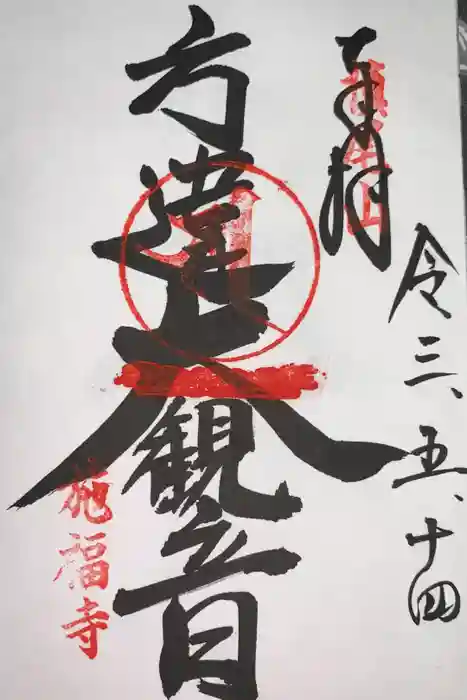 令三、五、十四
奉拝
槙尾山
方違大観音
施福寺